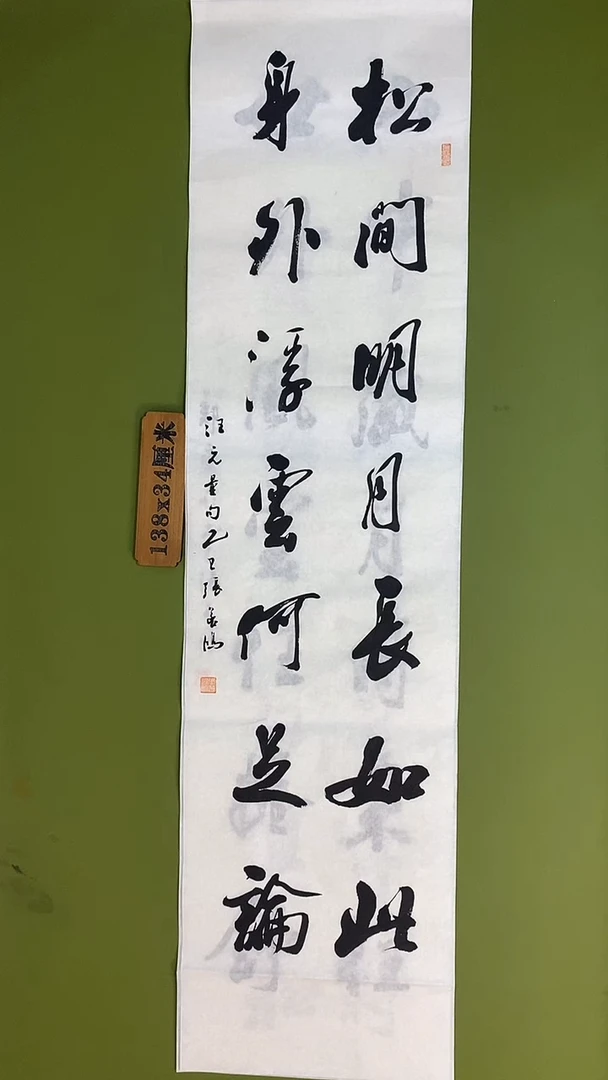 松間明月長如此
身外浮雲何足論
汪元量句乙巳張善鴻
138x34厘米